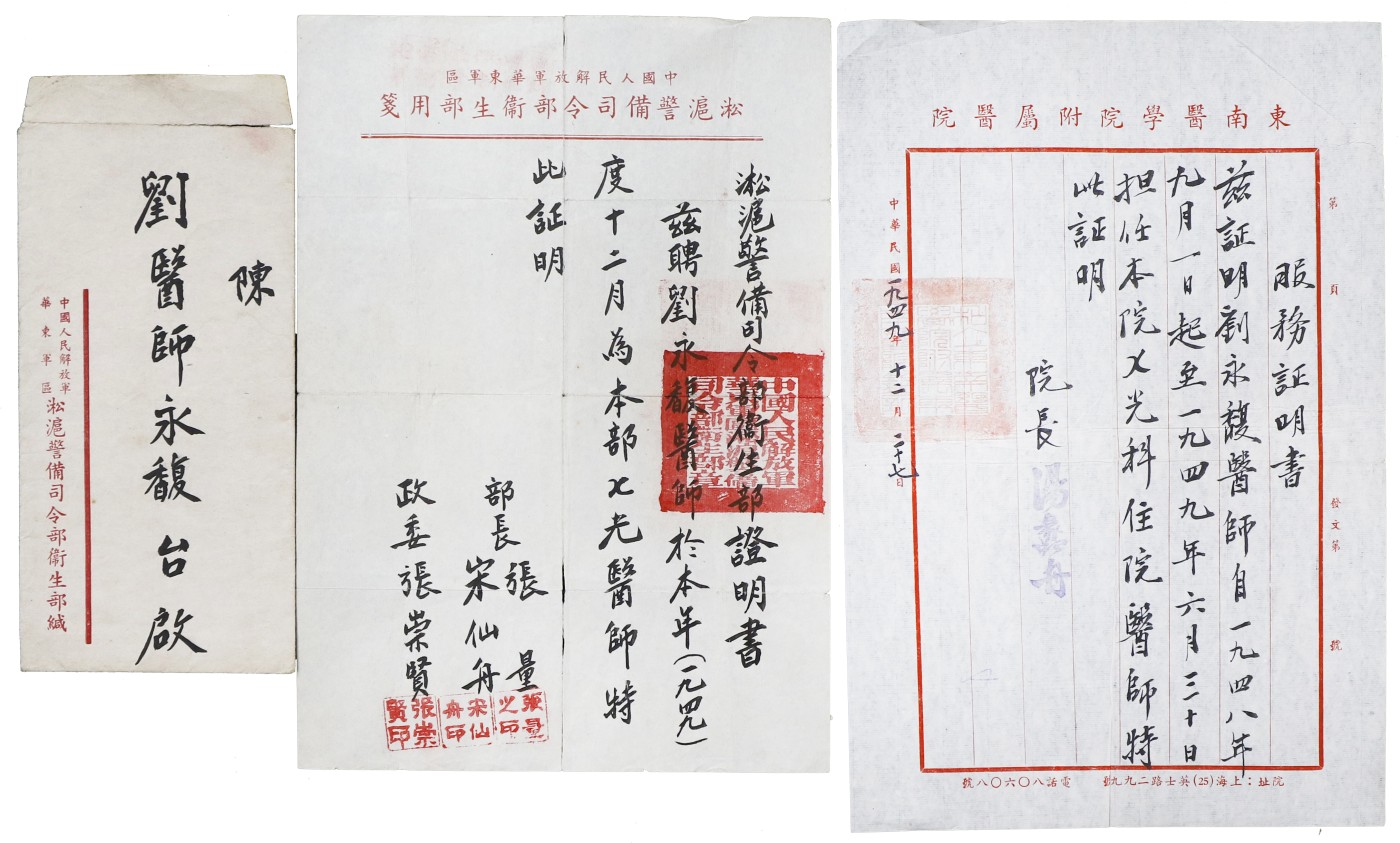 陳
劉醫師永馥台啟
中國人民解放軍
華東軍區
淞滬警備司令部衞生部緘
中國人民解放軍華東軍區
淞滬警備司令部衞生部用箋
淞滬警備司令部衞生部證明書
茲聘劉永馥醫師於本年(一九四九)
度十二月為本部X光醫師特
此証明
部長張量
宋仙舟
政委張崇賢
中國人民解放軍
張量之印
宋仙舟印
張崇賢印
東南醫學院附屬醫院
第頁
發文第號
服務証明書
茲証明劉永馥醫師自一九四八年
九月一日起至一九四九年六月三十日
担任本院X光科住院醫師特
此証明
院長
湯蠡舟
中華民國一九四九年十二月二十七日
院址:上海(25)英士路二九九號 電話八〇六〇八號